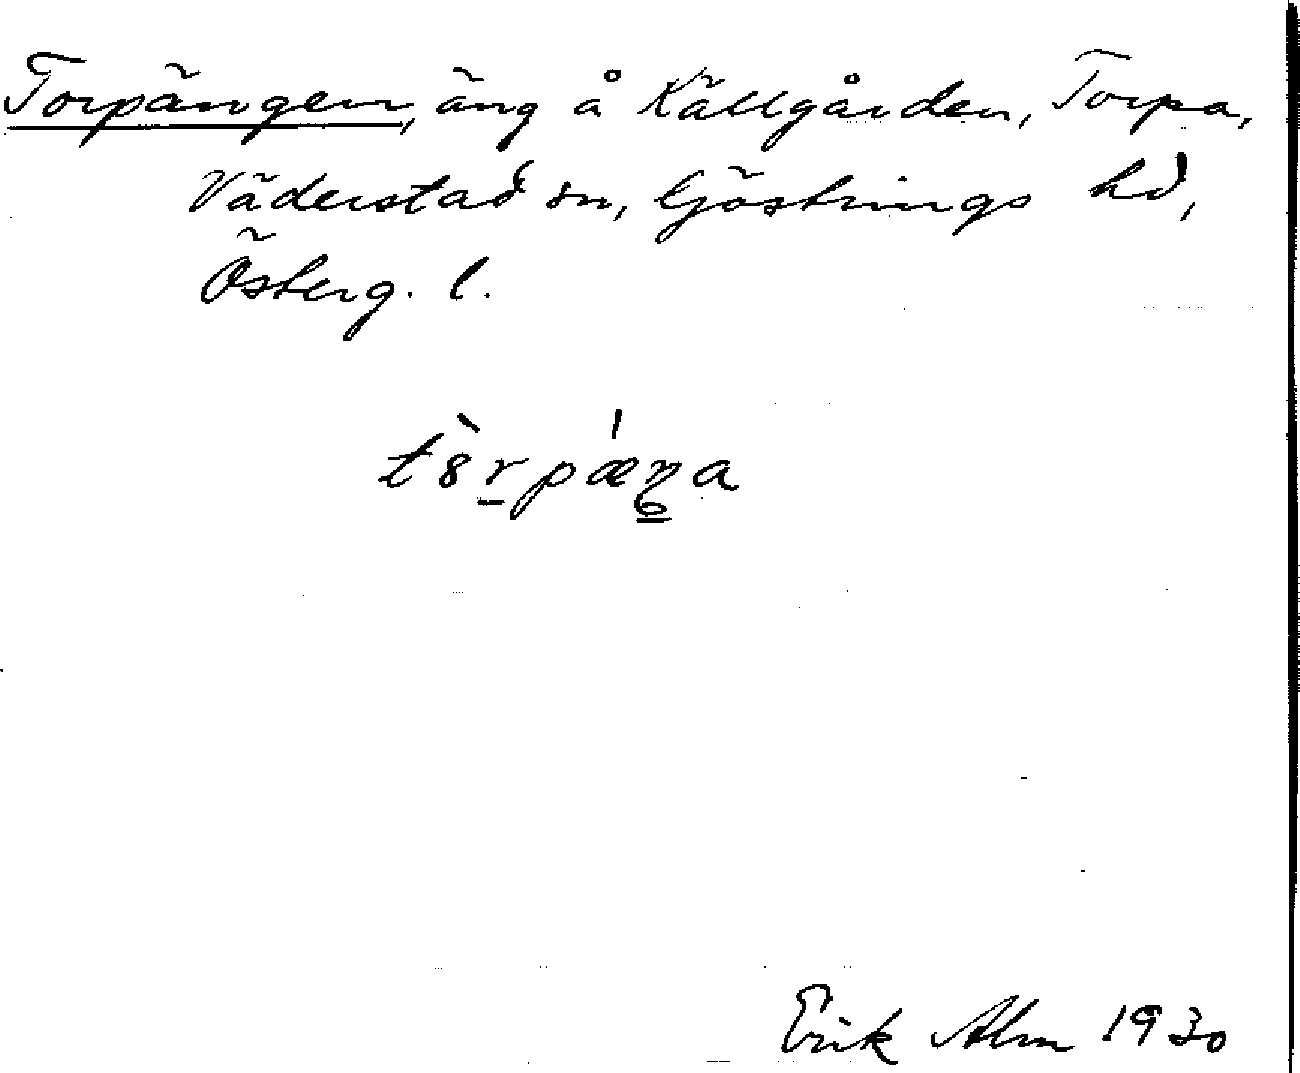 Torpängen, äng å Källgården, Torpa,
Väderstad sn, Göstrings hd,
Österg. l.
tȣ̀rpǽŋa
Erik Alm 1930